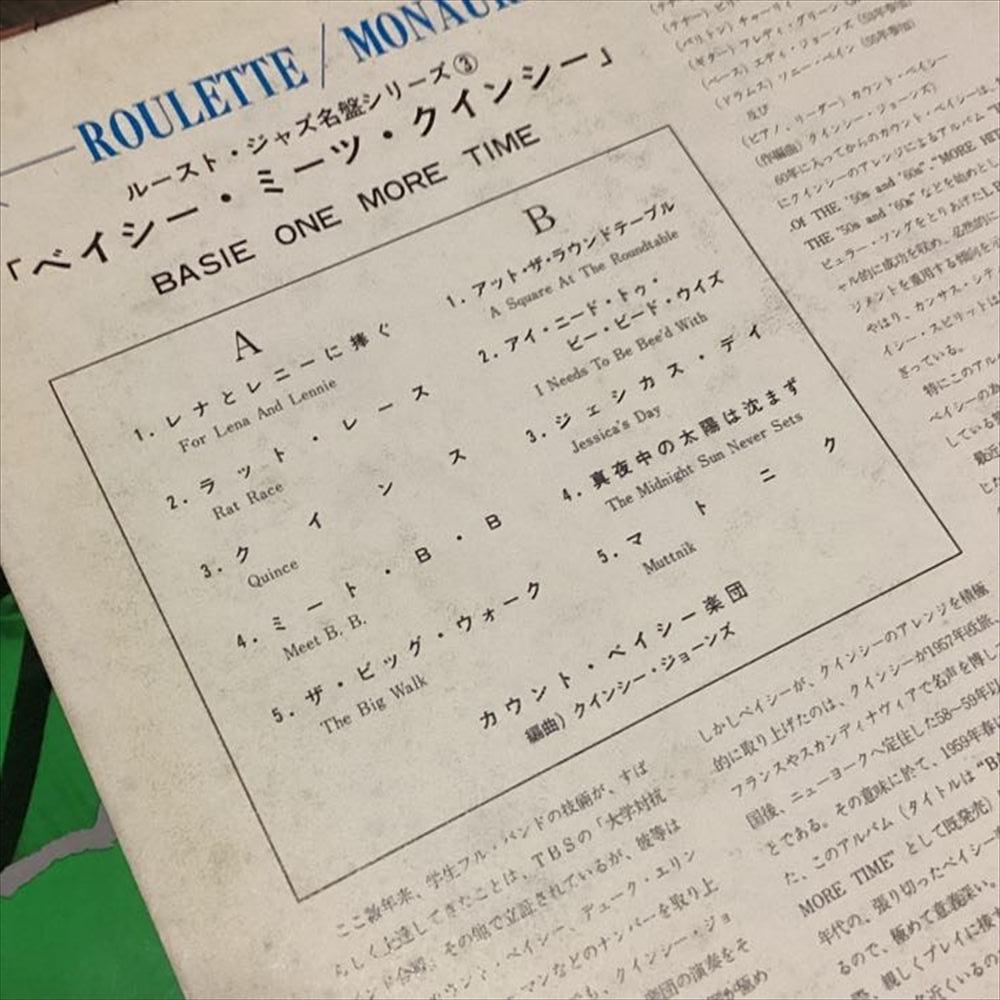 ROULETTE / MONAUR
ルースト・ジャズ名盤シリーズ③
「ベイシー・ミーツ・クインシー」
BASIE ONE MORE TIME
A
1. レナとレニーに捧ぐ
For Lena And Lennie
2. ラット・レース
Rat Race
3. クインス
Quince
4. ミート・B・B
Meet B. B.
5. ザ・ビッグ・ウォーク
The Big Walk
B
1. アット・ザ・ラウンドテーブル
A Square At The Roundtable
2. アイ・ニード・トゥ・
ビー・ビード・ウイズ
I Needs To Be Bee'd With
3. ジェシカス・デイ
Jessica's Day
4. 真夜中の太陽は沈まず
The Midnight Sun Never Sets
5. マトニク
Muttnik
カウント・ベイシー楽団
編曲) クインシー・ジョーンズ
(ギター) フレディ・グリーン
(ベース) エディ・ジョーンズ
(ドラムス) ソニー・ペイン
及び
(ピアノ、リーダー) カウント・ベイシー
(作編曲) クインシー・ジョーンズ)
60年に入ってからのカウント・ベイシーは、
にクインシーのアレンジによるアルバム
OF THE '50s and '60s" "MORE HI
THE '50s and '60s" などを始めとし
ピュラー・ソングをとりあげたL
ャル的に成功を収め、必然的に
ジメントを重用する傾向を
やはり、カンサス・シテ
イシー・スピリットは
ぎっている。
特にこのアル
ベイシーの為
している
最近
じた
ここ数年来、学生フル・バンドの技倆が、すば
らしく上達してきたことは、TBSの「大学対抗
バンド合戦」その他で立証されているが、彼等は
カウント・ベイシー、デューク・エリン
マンなどのナンバーを取り上
も、クインシー・ジョ
楽団の演奏をそ
が極め
しかしベイシーが、クインシーのアレンジを積極
的に取り上げたのは、クインシーが1957年欧旅、
フランスやスカンディナヴィアで名声を博し
国後、ニューヨークへ定住した58〜59年以
とである。その意味に於て、1959年春に
た、このアルバム (タイトルは "BA
MORE TIME" として既発売)
年代の、張り切ったベイシー
るので、極めて意義深い。
親しくプレイに接
近くいるの